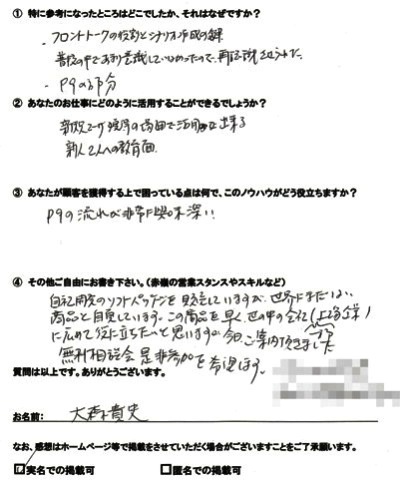 ① 特に参考になったところはどこでしたか、それはなぜですか？
・フロントトークの役割とシナリオ作成の鍵
普段の中であまり意識していなかったので、再認識させられた。
・P9の部分
② あなたのお仕事にどのように活用することができるでしょうか？
新規ユーザ獲得の場面で活用が出来る
新人2人への教育面
③ あなたが顧客を獲得する上で困っている点は何で、このノウハウがどう役立ちますか？
P9の流れが非常に興味深い
④ その他ご自由にお書き下さい。（赤嶺の営業スタンスやスキルなど）
自社開発のソフトパッケージを販売していますが、世界にまだない
商品と自負しています。この商品を早く世の中の会社（上場企業）
に広めて役に立ちたいと思いますが、今回ご案内頂きました
無料相談会是非参加を希望します。
質問は以上です。ありがとうございます。
お名前： 大森貴史
なお、感想はホームページ等で掲載をさせていただく場合がございますことをご了承願います。
☑実名での掲載可 □匿名での掲載可